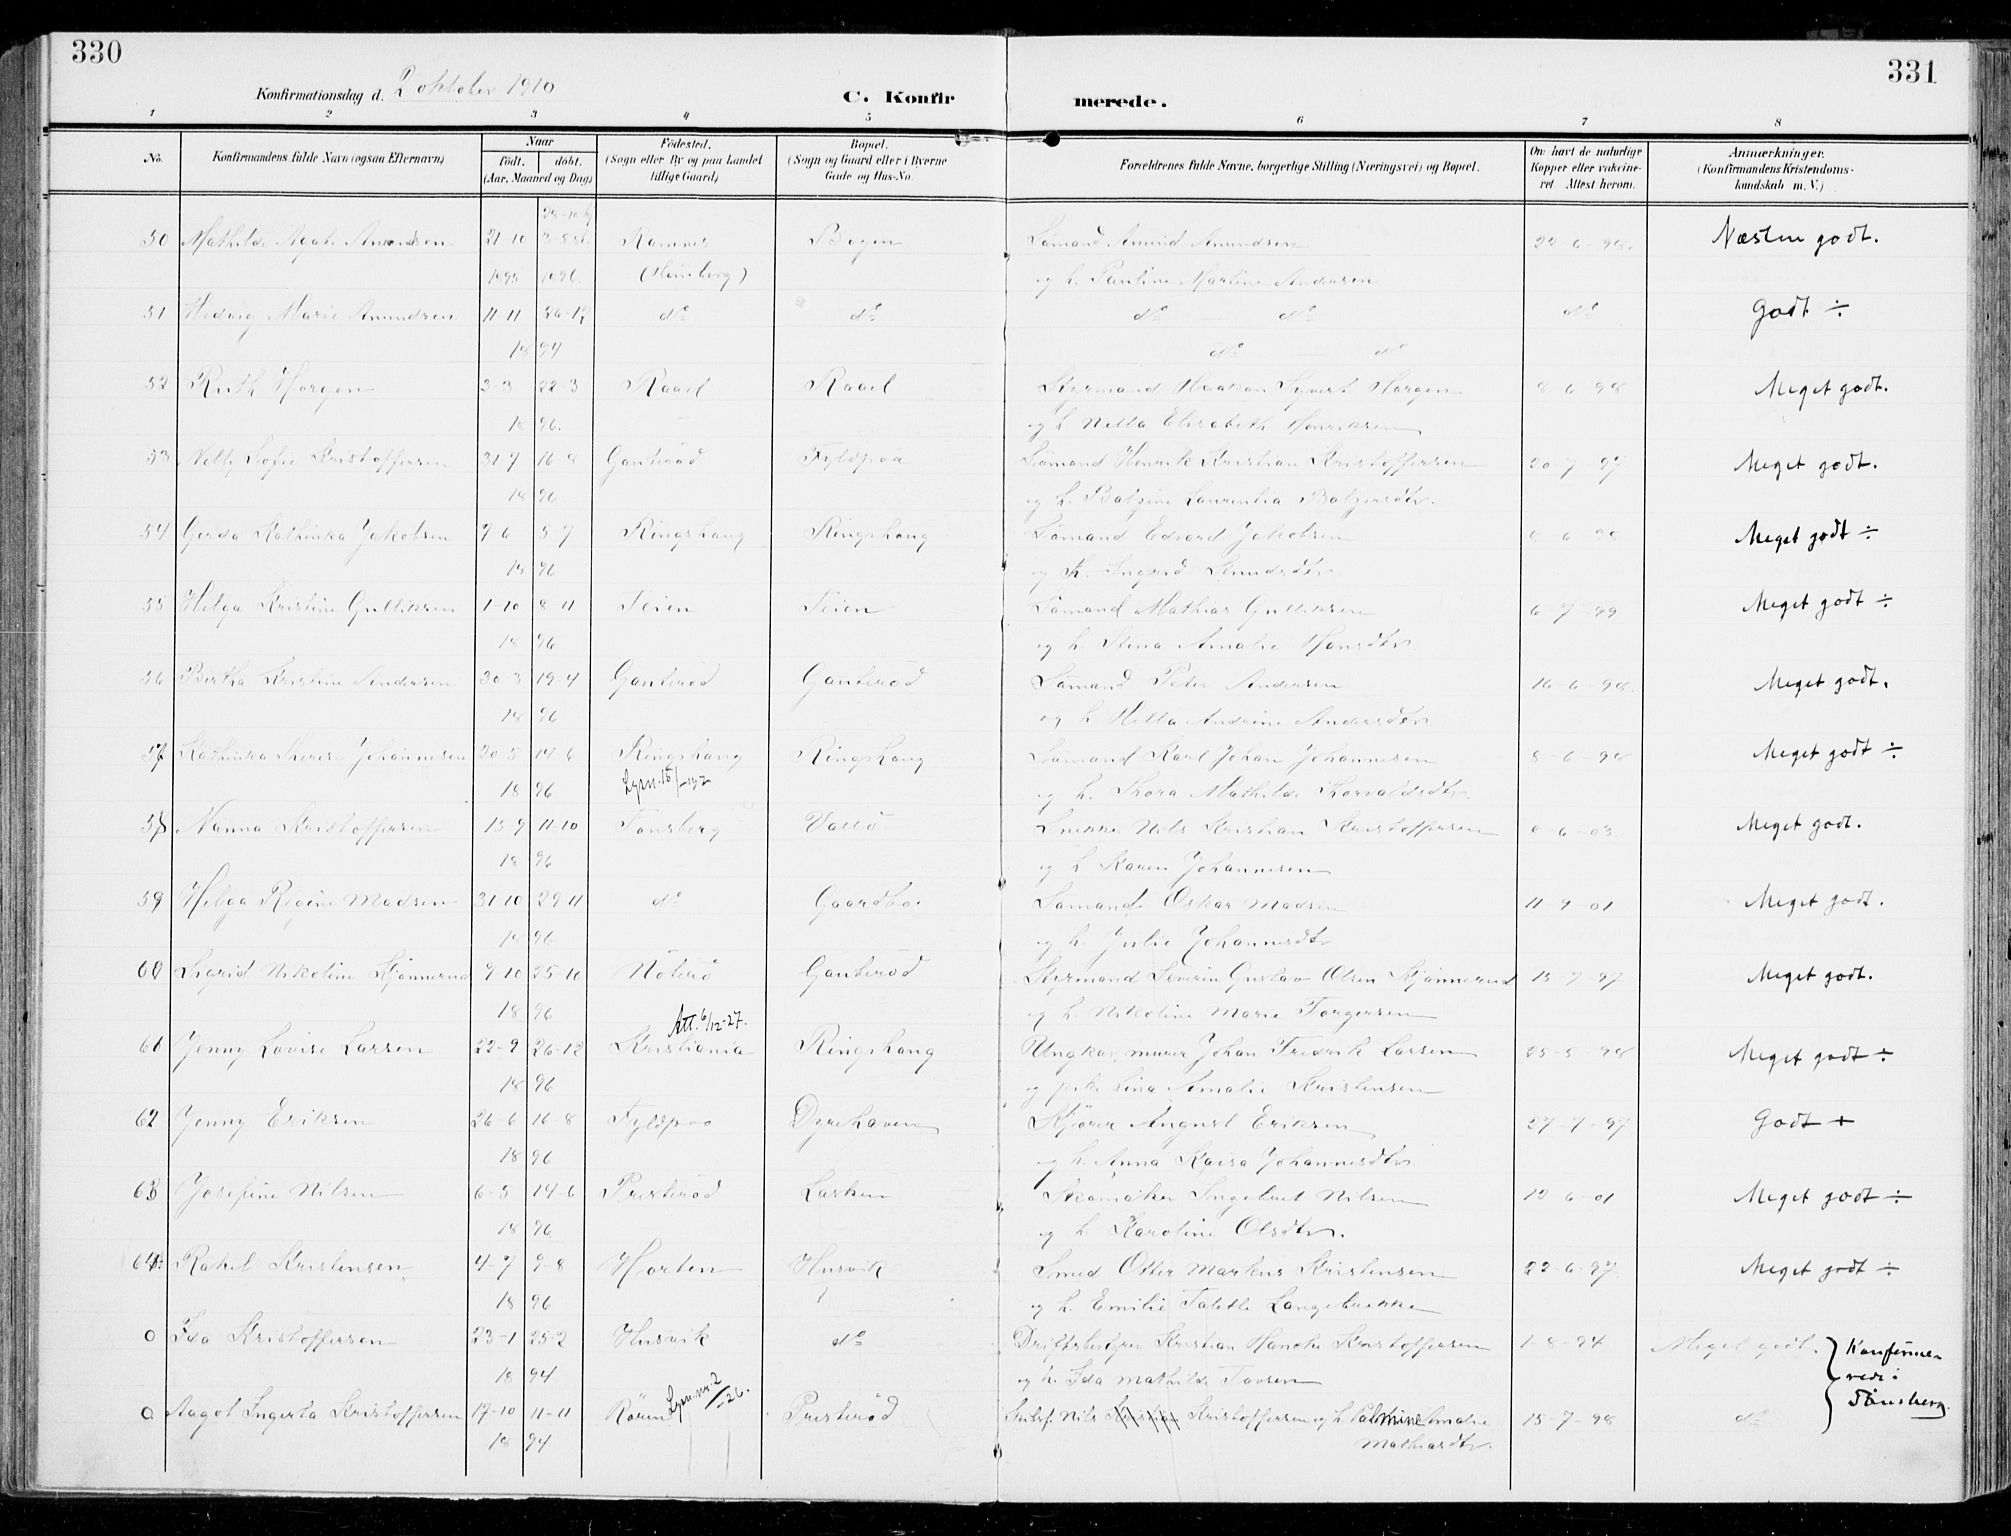 330
331
Konfirmationsdag d. 2 oktober 1910
C. Konfirmerede.
1 2 3 4 5 6 7 8
No. Konfirmandens fulde Navn (ogsaa Efternavn) Naar født. døbt. (Aar, Maaned og Dag) Fødested. (Sogn eller By og paa Landet tillige Gaard) Bopæl. (Sogn og Gaard eller i Byerne Gade og Hus-No. Forældrenes fulde Navne, borgerlige Stilling (Næringsvei) og Bopæl. Om havt de naturlige Kopper eller vakcineret. Attest herom. Anmærkninger. (Konfirmandens Kristendomskundskab m. V.)
50 Mathilde Agate Amundsen 21-10 Ramnes Bogen Sømand Amund Amundsen 22-6-98. Næsten godt.
1895 1896. og h. Pauline Martine Andersen
51 Hedvig Marie Amundsen 11-11 26-12 do do do do do Godt ÷
18 94 do do
52 Ruth Horgen 3-3 22-3 Raael Raael Styrmand Haakon Syvert Horgen 8-6-98 Meget godt.
18 96. og h. Netta Elisabeth Henriksen
53 Nelly Sofie Kristoffersen 31-7 16-8 Ganterød Fyldpaa Sømand Henrik Kristian Kristoffersen 20-7-97 Meget godt.
18 96 og h. Laurentia
54 Gerda Kathinka Jakobsen 7-6 5-7 Ringshaug Ringshaug Sømand Edvard Jakobsen Meget godt ÷
18 96 og h. Ingrid Knudsdtr.
55 Helga Kristine Gulliksen 1-10 8-11 Teien Teien Sømand Mathias Gulliksen 6-7-99 Meget godt ÷
18 96 og h. Stina Amalie Hansdtr.
56 Bertha Kristine Andersen 30-3 19-4 Ganterød Ganterød Sømand Peter Andersen 16-6-98. Meget godt.
18 96 og h. Andrine Andersdtr.
57 Kathinka Therese Johannesen 20-5 14-6 Ringshaug Ringshaug Sømand Karl Johan Johannesen 8-6-98 Meget godt ÷
18 96 og h. Thora Mathilde Thorvaldsdtr.
58 Nanna Kristoffersen 13-9 11-10 Tønsberg Vallø Snekker Nils Kristian Kristoffersen Meget godt.
18 96 og h. Karen Johannesen
59 Helga Regine Madsen 31-10 29-11 do Gaardbo. Sømand Oskar Madsen 11-9 01 Meget godt.
18 96 og h. Julie Johannesdtr
60 Sigrid Nikoline Skjønnerud 9-10 25-10 Nøterø Ganterød Styrmand Severin Gustav Olsen Skjønnerud 13-7-97 Meget godt.
18 96 og h. Nikoline Marie Torgersen
Att. 6/12-27.
61 Jenny Lovise Larsen 22-9 26-12 Kristiania Ringshaug Ungkar, murer Johan Fredrik Larsen 25-5-98 Meget godt ÷
18 96 og pike Lina Amalie Kristensen
62 Jenny Eriksen 26-6 16-8 Fyldpaa Dyrehaven Kjører August Eriksen 27-7-97 Godt +
18 96 og h. Anna Kaisa Johannesdtr.
63 Josefine Nilsen 6-5 14-6 Presterød Løkken Skomaker Ingebret Nilsen 12 6-01 Meget godt ÷
18 96 og h Karoline Olsdtr.
64 Rakel Kristensen 4-7 9-8 Horten Husvik Smed Otter Markus Kristensen 22-6-97. Meget godt ÷
18 96 og h. Emilie Talette Langebrekke
0 Ida Kristoffersen 23-1 25-2 Husvik do Driftsbestyrer Kristian Hancke Kristoffersen 1-8-94 Meget godt. Konfirmeredes i Tønsberg
18 94 og h. Ida Mathilde Tovsen
0 Aagot Ingerta Kristoffersen 17-10 11-11 Røren Presterød Nils Kristoffersen og h. Palmine Amalie Mathiasdtr. 15-7-98 do
18 94